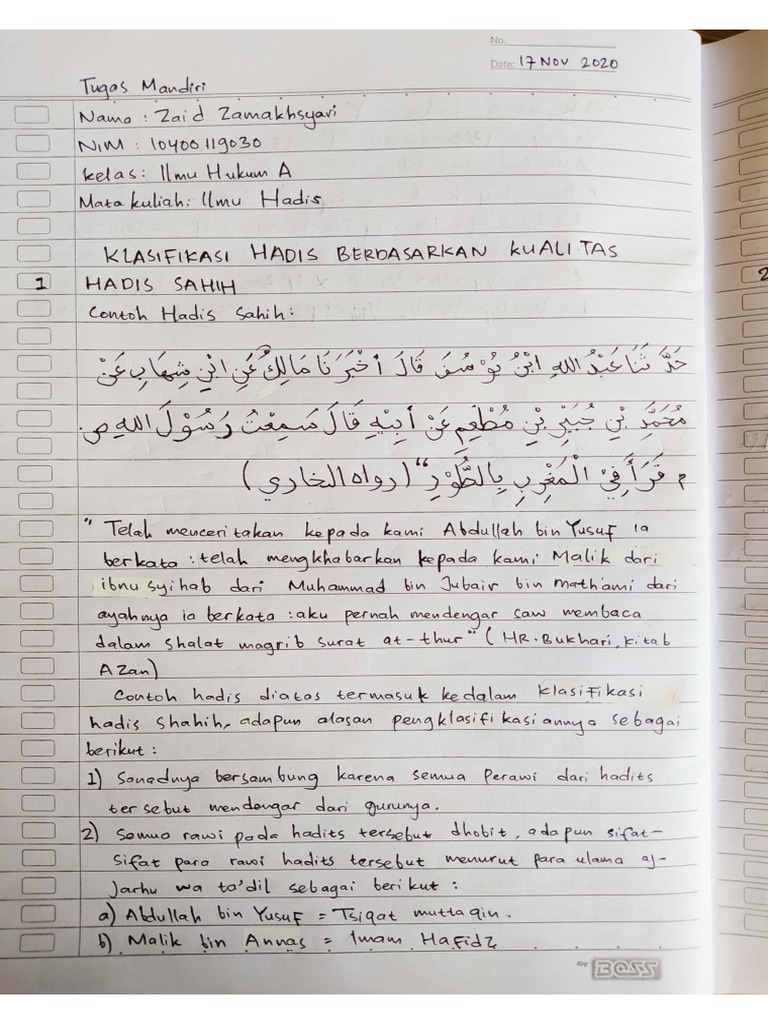 No.
Date: 17 Nov 2020
Tugas Mandiri
Nama : Zaid Zamakhsyari
NIM : 10400119030
Kelas : Ilmu Hukum A
Mata kuliah : Ilmu Hadis
KLASIFIKASI HADIS BERDASARKAN KUALITAS
1 HADIS SAHIH
Contoh Hadis Sahih :
حَدَّ ثَنَا عَبْدُ اللهِ ابْنُ يُوْسُفَ قَالَ أَخْبَرَنَا مَالِكٌ عَنِ ابْنِ شِهَابٍ عَنْ
مُحَمَّدِ بْنِ جُبَيْرِ بْنِ مُطْعِمِ عَنْ أَبِيْهِ قَالَ سَمِعْتُ رَسُوْلَ اللهِ ص.
م قَرَأَ فِيْ الْمَغْرِبِ بِالطُّوْرِ" (رواه البخاري)
" Telah menceritakan kepada kami Abdullah bin Yusuf ia
berkata : telah mengkhabarkan kepada kami Malik dari
ibnu syihab dari Muhammad bin Jubair bin math'ami dari
ayahnya ia berkata : aku pernah mendengar saw membaca
dalam shalat magrib surat at-thur" ( HR. Bukhari, Kitab
Azan)
Contoh hadis diatas termasuk kedalam klasifikasi
hadis shahih, adapun alasan pengklasifikasiannya sebagai
berikut :
1) Sanadnya bersambung karena semua perawi dari hadits
tersebut mendengar dari gurunya.
2) Semua rawi pada hadits tersebut dhobit, adapun sifat-
sifat para rawi hadits tersebut menurut para ulama aj-
jarhu wa ta'dil sebagai berikut :
a) Abdullah bin Yusuf = Tsiqat muttaqin.
b) Malik bin Annas = Imam Hafidz
BOSS